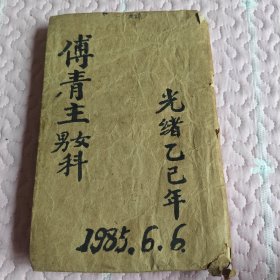 傅青主
男女科
光绪乙巳年
1985.6.6.